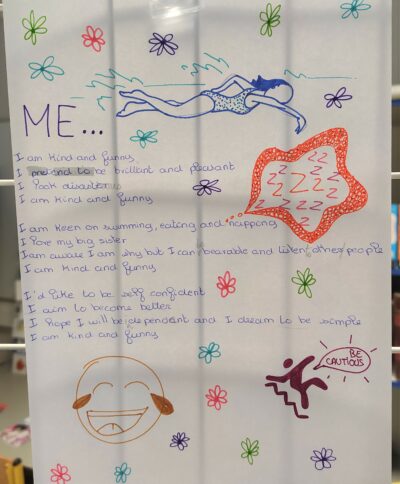 ME...
I am kind and funny
I pretend to be brilliant and pleasant
I look disaster
I am kind and funny
I am keen on swimming, eating and napping
I love my big sister
I am aware I am shy but I can bearable and listen other people
I am kind and funny
I'd like to be self confident
I aim to become better
I hope I will be dependent and I dream to be simple
I am kind and funny
zz
zzz
z z Z z z
z z z z
BE
CAUTIOUS